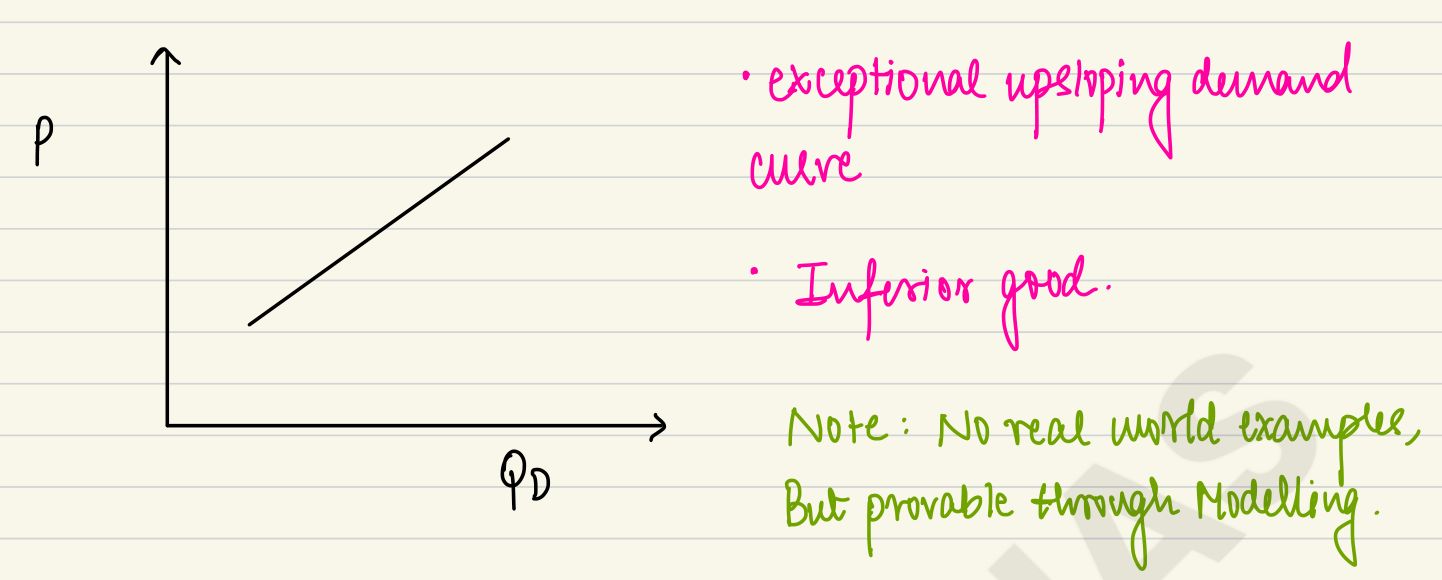 P
QD
• exceptional upsloping demand
curve
• Inferior good.
Note: No real world examples,
But provable through Modelling.
NAS